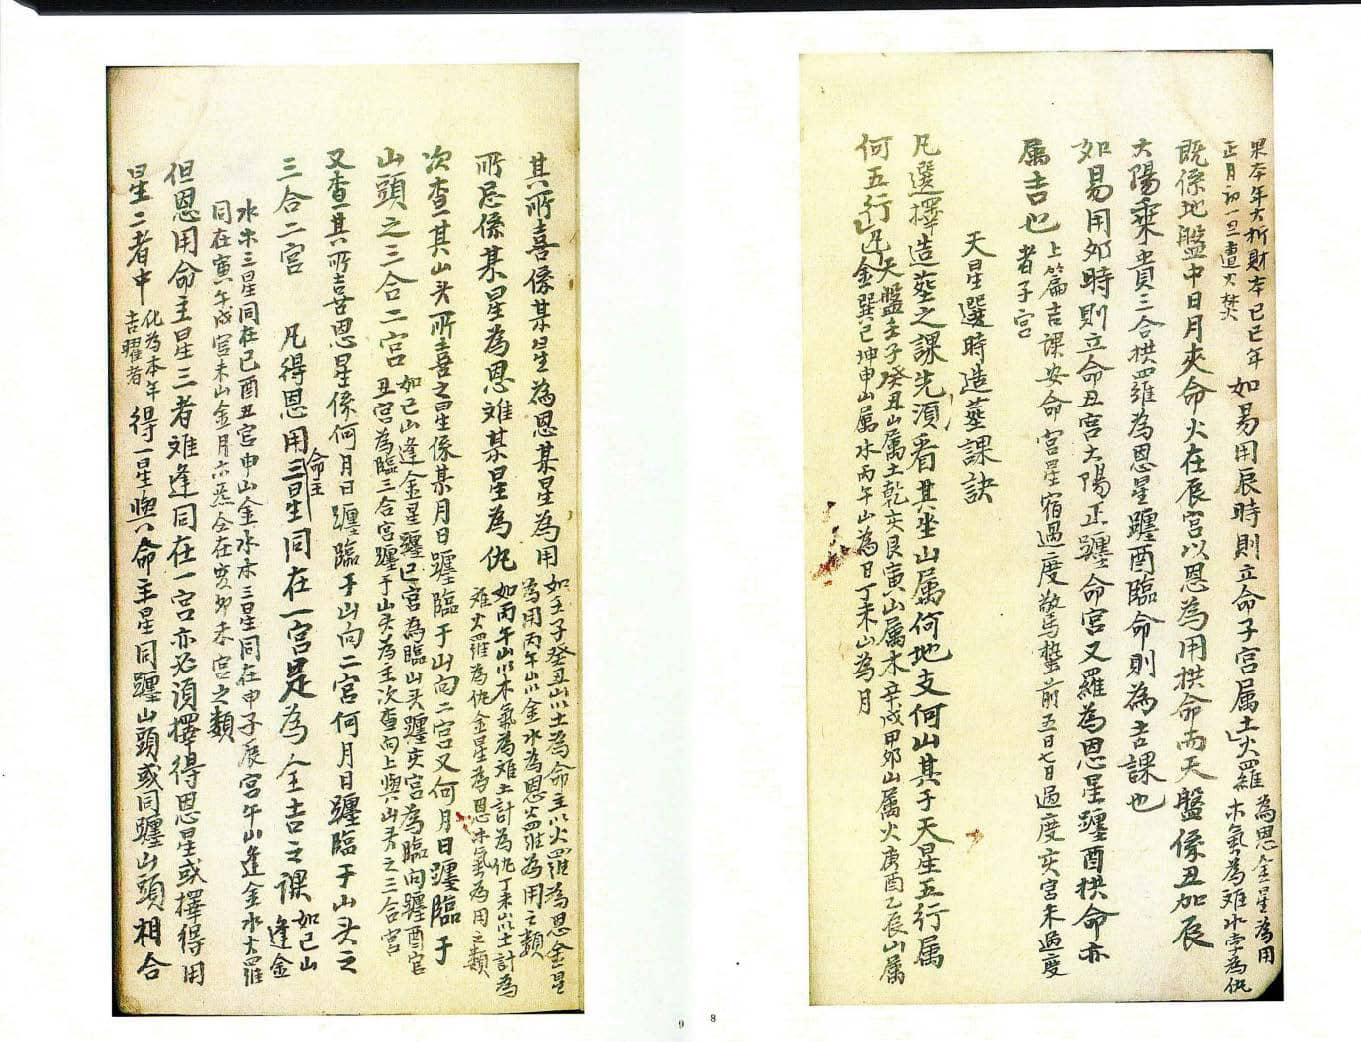 果本年大折財本己巳年
正月初一旦遭火焚
如易用辰時則立命子宮属土火羅
為恩金星為用
木氣為难水孛為仇
既係地盤中日月夾命火在辰宮以恩為用拱命而天盤係丑加辰
太陽乘貴三合拱羅為恩星躔酉臨命則為吉課也
如易用卯時則立命丑宮太陽正躔命宮又羅為恩星躔酉拱命亦
属吉也
上篇吉課安命宮星宿過度驚蟄前五七日過度亥宮未過度
者子宮
天星選時造葬課訣
凡選擇造葬之課先須看其坐山属何地支何山其于天星五行属
何五行
凡天盤壬子癸丑山属土乾亥艮寅山属木辛戌甲卯山属火庚酉乙辰山属
金巽巳坤申山属水丙午山為日丁未山為月
8
其所喜係某星為恩某星為用
如壬子癸丑山以土為命主以火羅為恩金星
為用丙午山以金水為恩火羅為用之類
所忌係某星為恩难某星為仇
如丙午山以木氣為难土計為仇丁未山以土計為
难火羅為仇金星為恩水氣為用之類
次查其山头所喜之星係某月日躔臨于山向二宮又何月日躔臨于
山頭之三合二宮
如巳山逢金星躔巳宮為臨山头躔亥宮為臨向躔酉宮
丑宮為臨三合宮躔于山头為主次查向上與山头之三合宮
又查其所喜恩星係何月日躔臨于山向二宮何月日躔臨于山头之
三合二宮 凡得恩用命主三星同在一宮是為全吉之課
如巳山
逢金
水木三星同在巳酉丑宮申山金水木三星同在申子辰宮午山逢金水火羅
同在寅午戌宮未山金月六炁会在亥卯未宮之類
但恩用命主星三者难逢同在一宮亦必須擇得恩星或擇得用
星二者中
化為本年
吉曜者
得一星與命主星同躔山頭或同躔山頭相合
9